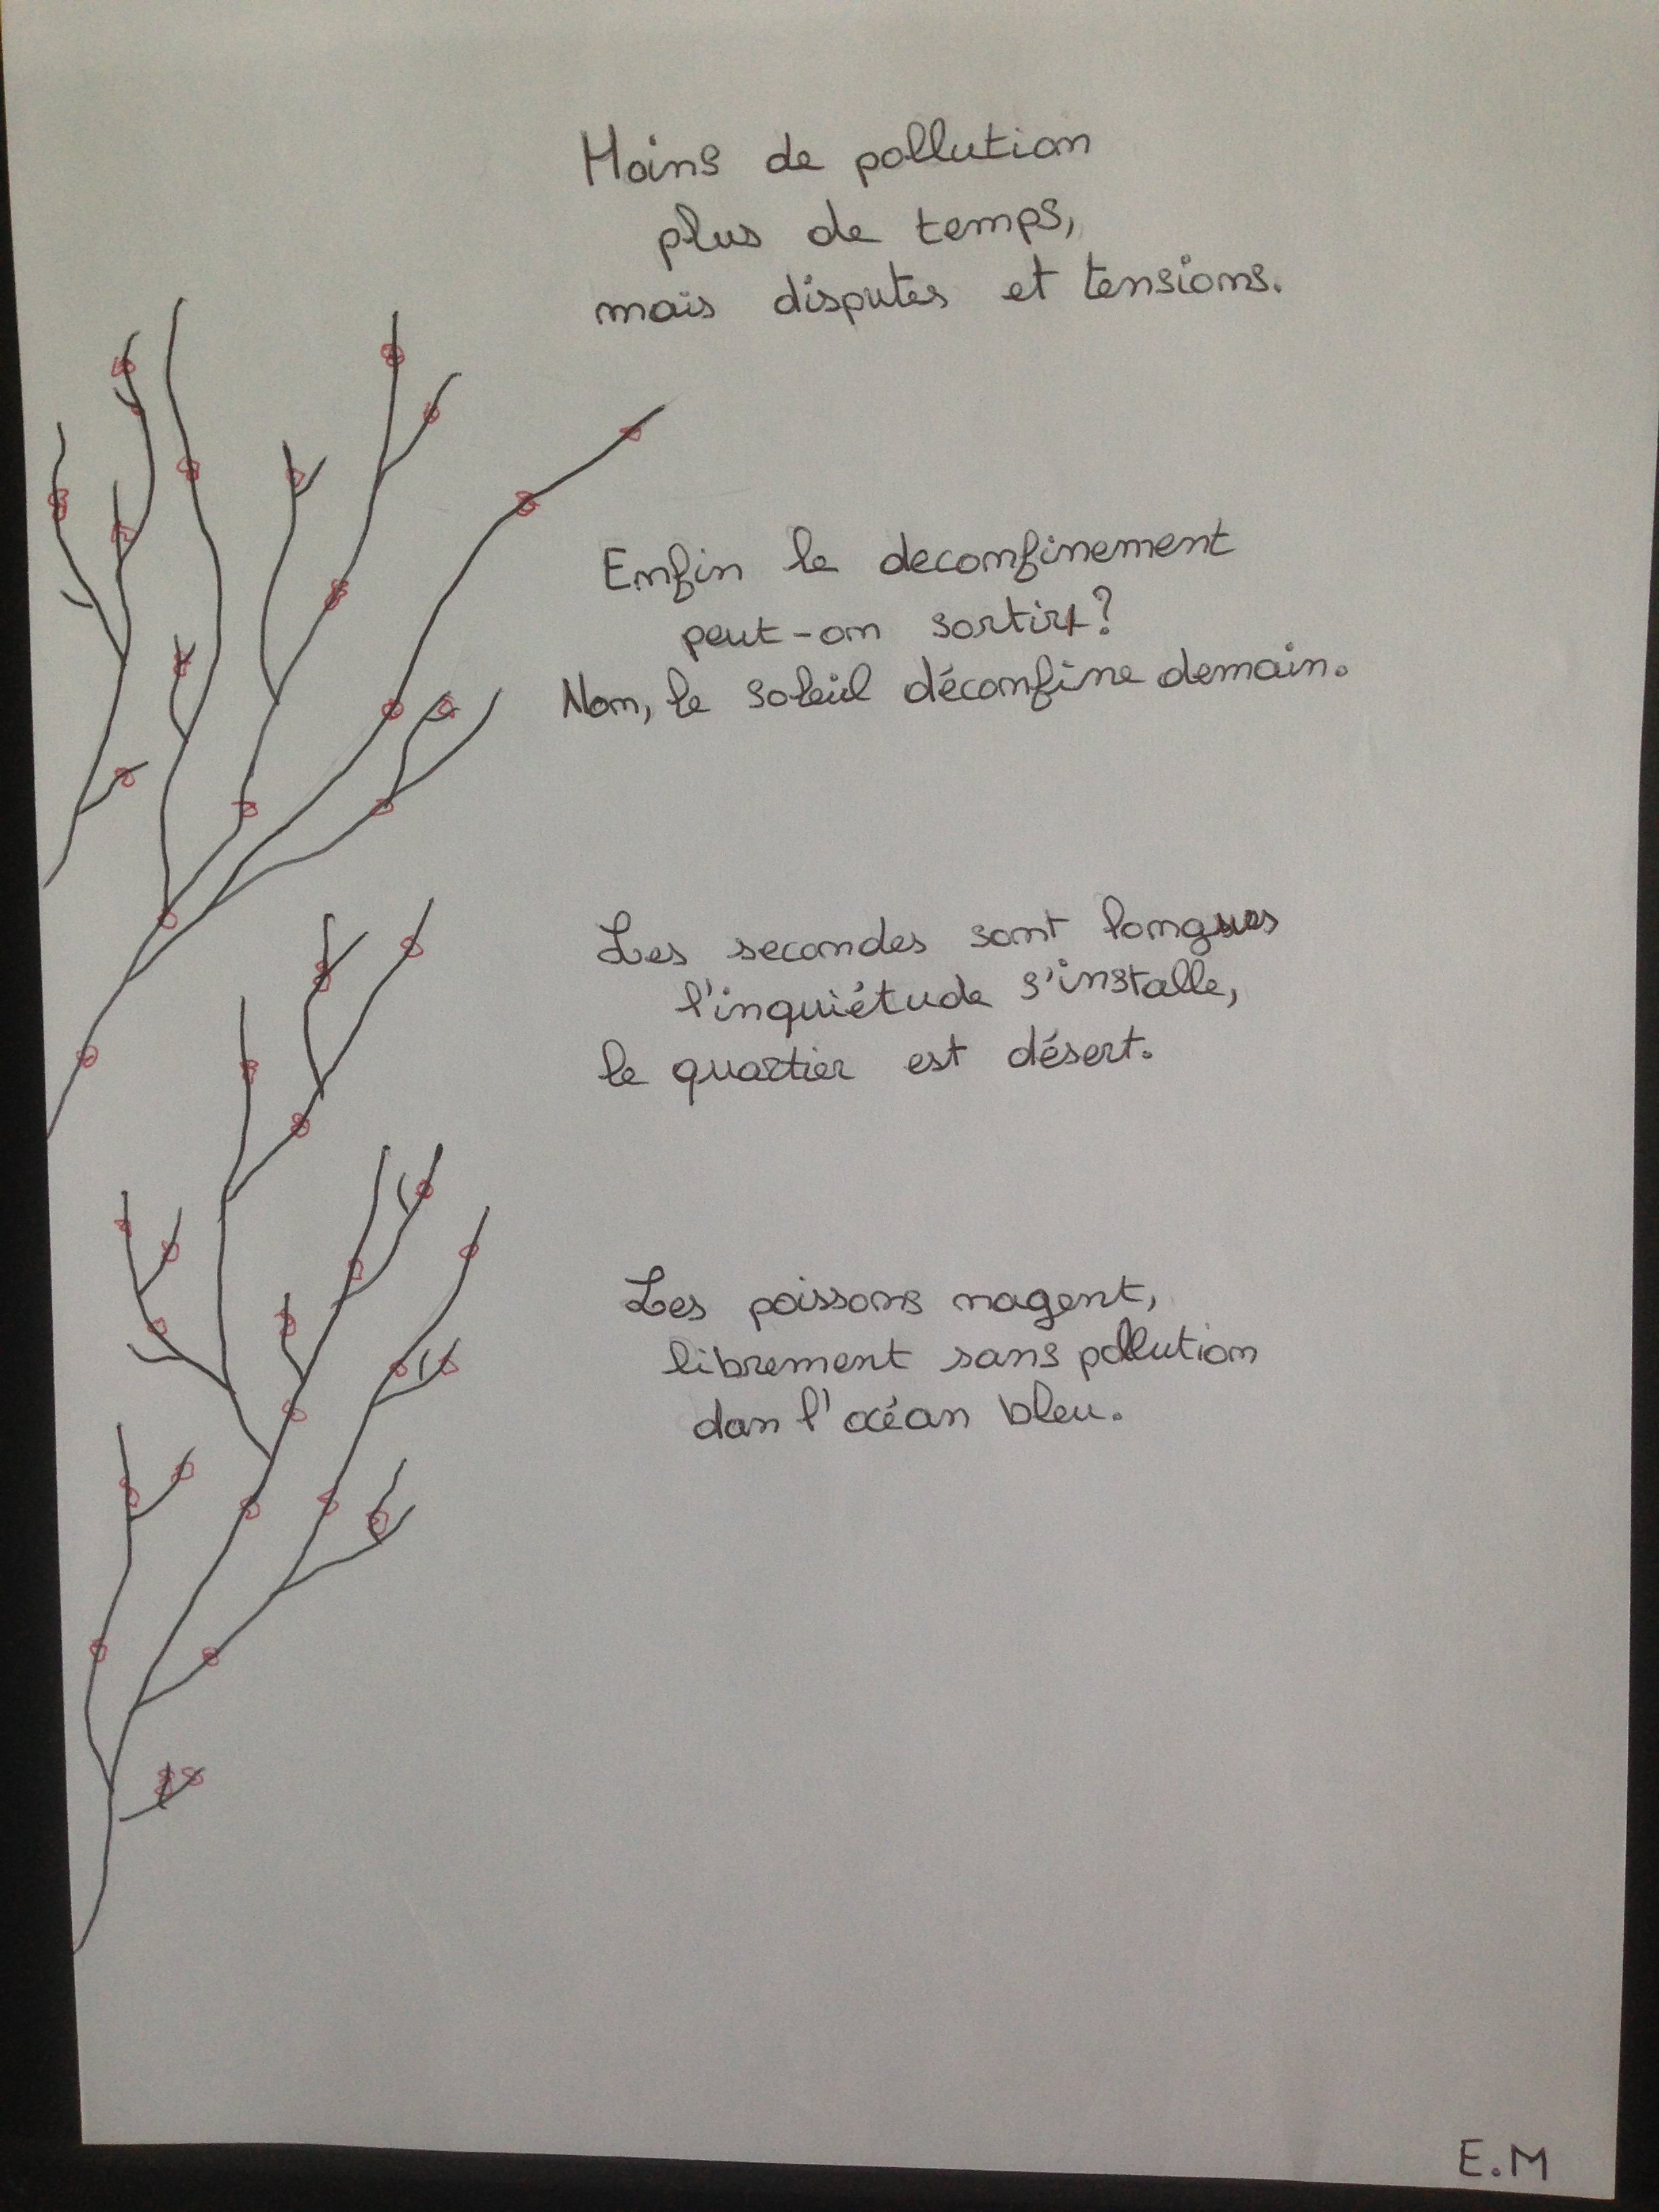 Moins de pollution
plus de temps,
mais disputes et tensions.
Enfin le deconfinement
peut-on sortir?
Non, le soleil déconfine demain.
Les secondes sont longues
l'inquiétude s'installe,
le quartier est désert.
Les poissons nagent,
librement sans pollution
dan l'océan bleu.
E.M